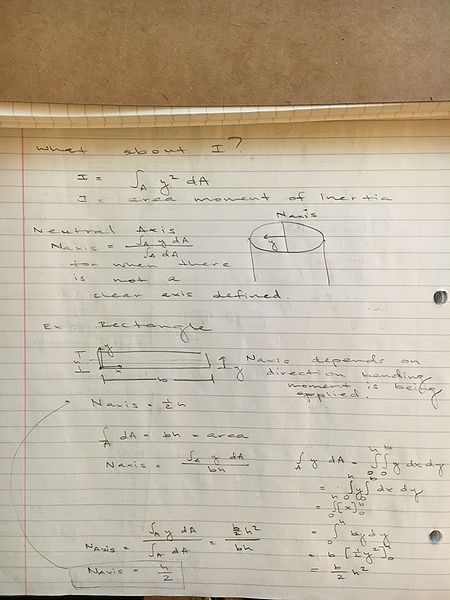 What about I?
I = ∫_A y² dA
I = area moment of Inertia
Neutral Axis
Naxis
y
Naxis = ∫_A y dA / ∫_A dA
for when there
is not a
clear axis defined.
Ex: Rectangle
y
h
x
b
y
Naxis depends on
direction bending
moment is being
applied.
Naxis = ½h
∫_A dA = bh = area
Naxis = ∫_A y dA / bh
∫_A y dA = ∫₀^h ∫₀^b y dx dy
= ∫₀^h y ∫₀^b dx dy
= ∫₀^h [x]₀^b
= ∫₀^h by dy
= b [½y²]₀^h
= b/2 h²
Naxis = ∫_A y dA / ∫_A dA = b/2 h² / bh
Naxis = h/2